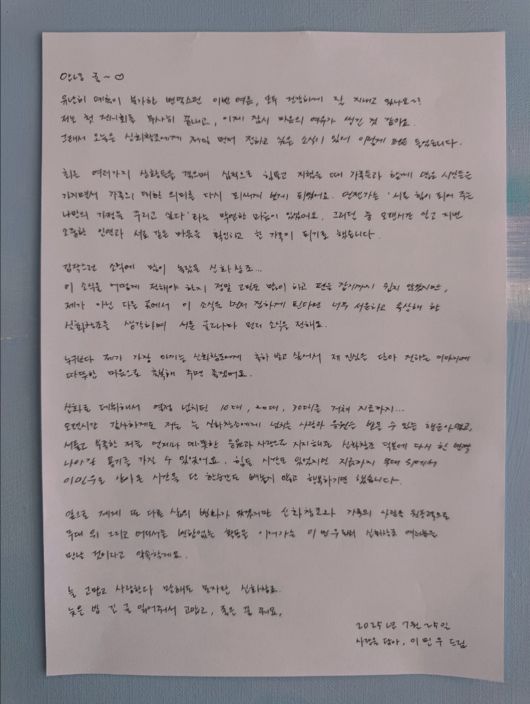 안녕 귤~♡
유난히 더위가 불가한 변덕스런 이번 여름, 모두 건강하게 잘 지내고 있나요~?
저는 첫 전시회를 무사히 끝내고, 이제 잠시 마음의 여유가 생긴 것 같아요.
그래서 오늘은 신화창조에게 제일 먼저 전하고 싶은 소식이 있어 이렇게 펜을 들었습니다.
최근 여러가지 상황들을 겪으며 심적으로 힘들고 지쳤을 때 가족들과 함께 많은 시간들을
가지면서 가족의 대한 의미를 다시 되새겨 보게 되었어요. 언젠가는 '서로 힘이 되어 주는
나만의 가정을 꾸리고 싶다' 라는 막연한 마음이 있었어요. 그러던 중 오랜시간 알고 지낸
소중한 인연과 서로 같은 마음을 확인하고 한 가족이 되기로 했습니다.
갑작스런 소식에 많이 놀랐을 신화창조...
이 소식을 어떻게 전해야 할지 정말 고민도 많이 하고 펜을 잡기까지 쉽지 않았지만,
제가 아닌 다른 곳에서 이 소식을 먼저 전하게 된다면 너무 서운하고 속상해 할
신화창조를 생각하며 서툰 글로나마 먼저 소식을 전해요.
누구보다 제가 가장 아끼는 신화창조에게 축하 받고 싶어서 제 진심을 담아 전하는 이야기에
따뜻한 마음으로 축복해 주면 좋겠어요.
신화로 데뷔해서 열정 넘치던 10대, 20대, 30대를 거쳐 지금까지...
오랜시간 감사하게도 저는 늘 신화창조에게 넘치는 사랑과 응원을 받을 수 있는 행운아였고,
서툴고 부족한 저를 언제나 따뜻한 응원과 사랑으로 지지해준 신화창조 덕분에 다시 한 번
나아갈 용기를 가질 수 있었어요. 힘든 시간도 있었지만 지금까지 무대 위에서
이민우로 살아온 시간을 단 한순간도 빼놓지 않고 행복하기만 했습니다.
앞으로 제게 또 다른 삶의 변화가 생기지만 신화창조와 가족의 사랑을 원동력으로
무대 위 그리고 어디서든 변함없는 활동을 이어가는 이민우로 신화창조 여러분을
만날 것이라고 약속할게요.
늘 고맙고 사랑한다 말해도 모자란 신화창조
늦은 밤 긴 글 읽어줘서 고맙고, 좋은 꿈 꿔요.
2025년 7월 25일
사랑을 담아, 이민우 드림